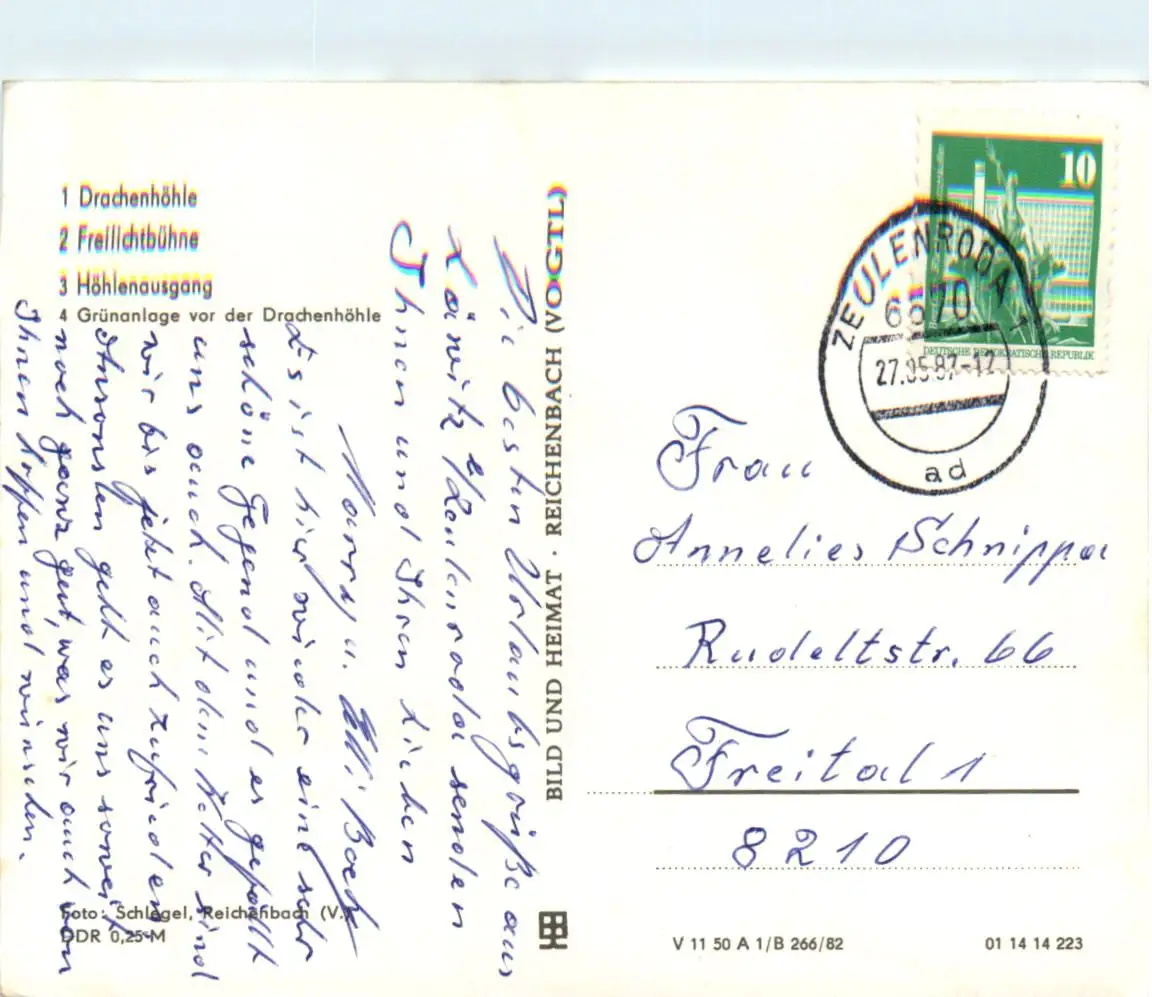 1 Drachenhöhle
2 Freilichtbühne
3 Höhlenausgang
4 Grünanlage vor der Drachenhöhle
Die besten Urlaubsgrüße aus
/Zeulenroda senden
Ihnen und Ihren Lieben
Es ist hier wieder eine sehr
schöne Gegend und es gefällt
uns auch. Mit dem Wetter sind
wir bis jetzt auch zufrieden.
Ansonsten geht es uns soweit
noch ganz gut, was wir auch von
Ihnen hoffen und wünschen.
Foto: Schlegel, Reichenbach (V.)
DDR 0,25 M
BILD UND HEIMAT · REICHENBACH (VOGTL)
10
DEUTSCHE DEMOKRATISCHE REPUBLIK
ZEULENRODA
6570
27.05.87-17
ad
Frau
Annelies Schnippa
Rudeltstr. 66
Freital 1
8210
V 11 50 A 1/B 266/82
01 14 14 223